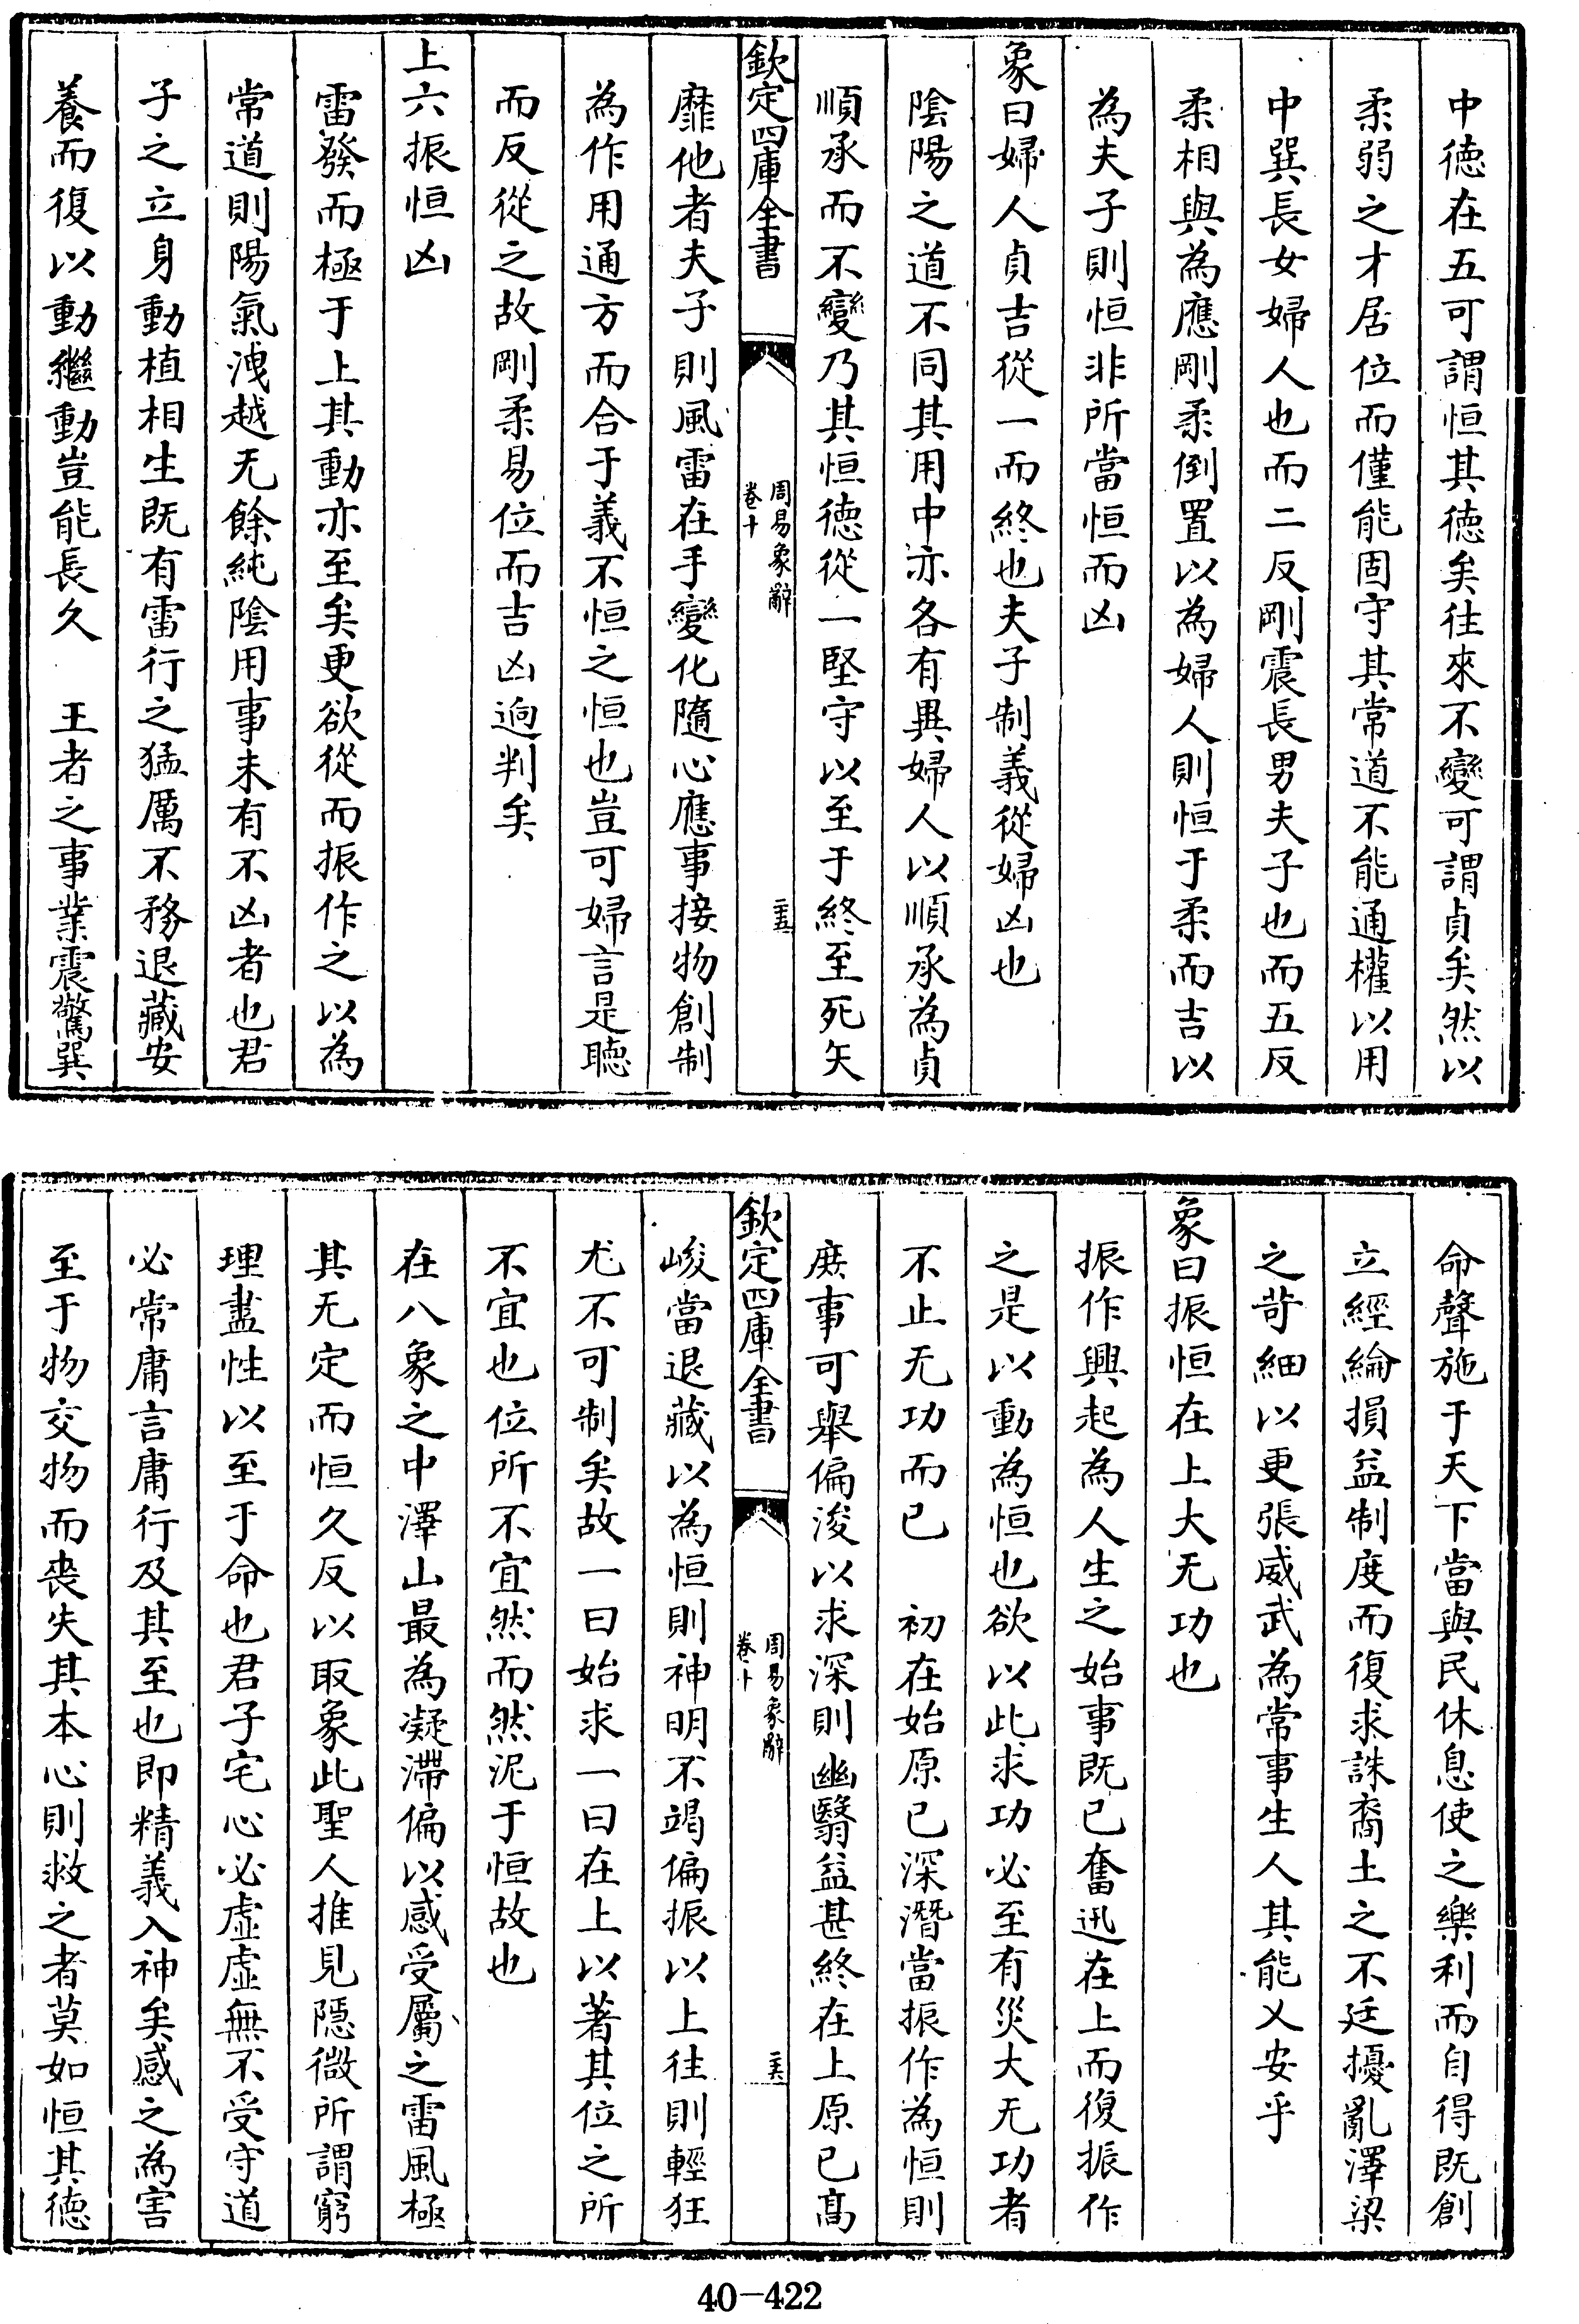 中徳在五可謂恒其徳矣往來不變可謂貞矣然以
柔弱之才居位而僅能固守其常道不能通權以用
中巽長女婦人也而二反剛震長男夫子也而五反
柔相與為應剛柔倒置以為婦人則恒于柔而吉以
為夫子則恒非所當恒而凶
象曰婦人貞吉從一而終也夫子制義從婦凶也
陰陽之道不同其用中亦各有異婦人以順承為貞
順承而不變乃其恒徳從一堅守以至于終至死矢
欽定四庫全書
周易象辭
卷十
三五
靡他者夫子則風雷在手變化隨心應事接物創制
為作用通方而合于義不恒之恒也豈可婦言是聽
而反從之故剛柔易位而吉凶逈判矣
上六振恒凶
雷發而極于上其動亦至矣更欲從而振作之以為
常道則陽氣洩越无餘純陰用事未有不凶者也君
子之立身動植相生既有雷行之猛厲不務退藏安
養而復以動繼動豈能長久　王者之事業震驚巽
命聲施于天下當與民休息使之樂利而自得既創
立經綸損益制度而復求誅裔土之不廷擾亂澤梁
之苛細以更張威武為常事生人其能乂安乎
象曰振恒在上大无功也
振作興起為人生之始事既已奮迅在上而復振作
之是以動為恒也欲以此求功必至有災大无功者
不止无功而已　初在始原已深潛當振作為恒則
庶事可舉偏浚以求深則幽翳益甚終在上原已髙
欽定四庫全書
周易象辭
卷十
三六
峻當退藏以為恒則神明不竭偏振以上往則輕狂
尤不可制矣故一曰始求一曰在上以著其位之所
不宜也位所不宜然而然泥于恒故也
在八象之中澤山最為凝滯偏以感受屬之雷風極
其无定而恒久反以取象此聖人推見隱微所謂窮
理盡性以至于命也君子宅心必虛虛無不受守道
必常庸言庸行及其至也即精義入神矣感之為害
至于物交物而喪失其本心則救之者莫如恒其徳
40-422